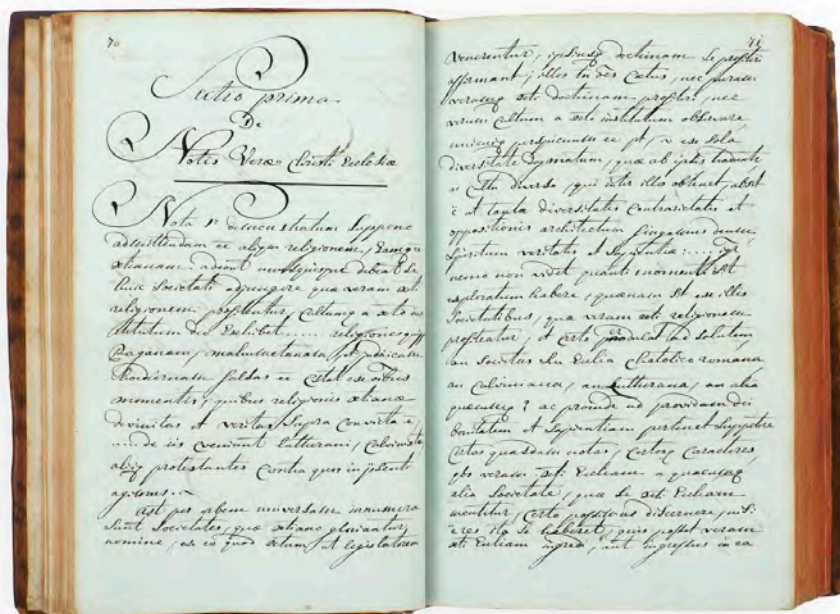 70
Sectio prima
De
Notis Veræ Christi Ecclesiæ
Nota 1ª demonstratum suppono
admittendam ee aliqm religionem, eamque
xtianam. adeont unusquisque debeat se
huic Societati adjungere quæ veram xti
religionem profitentur, cultumq a xto in
stitutum Deo Exhibet ..... religionesque
Paganam, mahumetanam, et judaicam
hodiernam falsas ee Cstat ex oibus
momentis, quibus religionis xtianæ
divinitas et veritas supra convicta e,
.... de iis veniunt Lutherani, Calvinistæ
aliiq protestantes contra quos in psenti
agimus.
ast per orbem universum innumeræ
sunt Societates, quæ xtiano gloriantur
nomine, ex eo quod xtum, ut legislatorem
71
venerentur, ipsiusq doctrinam se profiteri
affirmant; illos tn oes Cœtus, nec puram
veramq xti doctrinam profiteri, nec
verum cultum a xto institutum observare
unicuiq perspicuum ee pt, ex sola
diversitate Dogmatum, quæ ab iptis traduntr
et cultu diverso, qui inter illos obtinet, absit
e ut tantæ diversitatis contrarietatis et
oppositionis architectum fingamus deum
Spiritum veritatis et Sapientiæ: ....
nemo non videt quanti momenti sit
exploratum habere, quænam sit ex illis
Societatibus, quæ veram xti religionem
profiteatur, et certo producat ad salutem
an societas seu Ecclia Catholico romana
an Calviniana, an Lutherana, an alia
quæcumq? ac proinde ad providam dei
bonitatem et sapientiam pertinet suppetere
certas quasdam notas, certosq Caracteres,
qbs veram xti Eccliam a quacumq
alia Societate, quæ se xti Ecliam
mentitur, certo possimus discernere, nisi
eres ita se haberet, quis posset veram
xti Ecliam ingredi, aut ingressus in ea